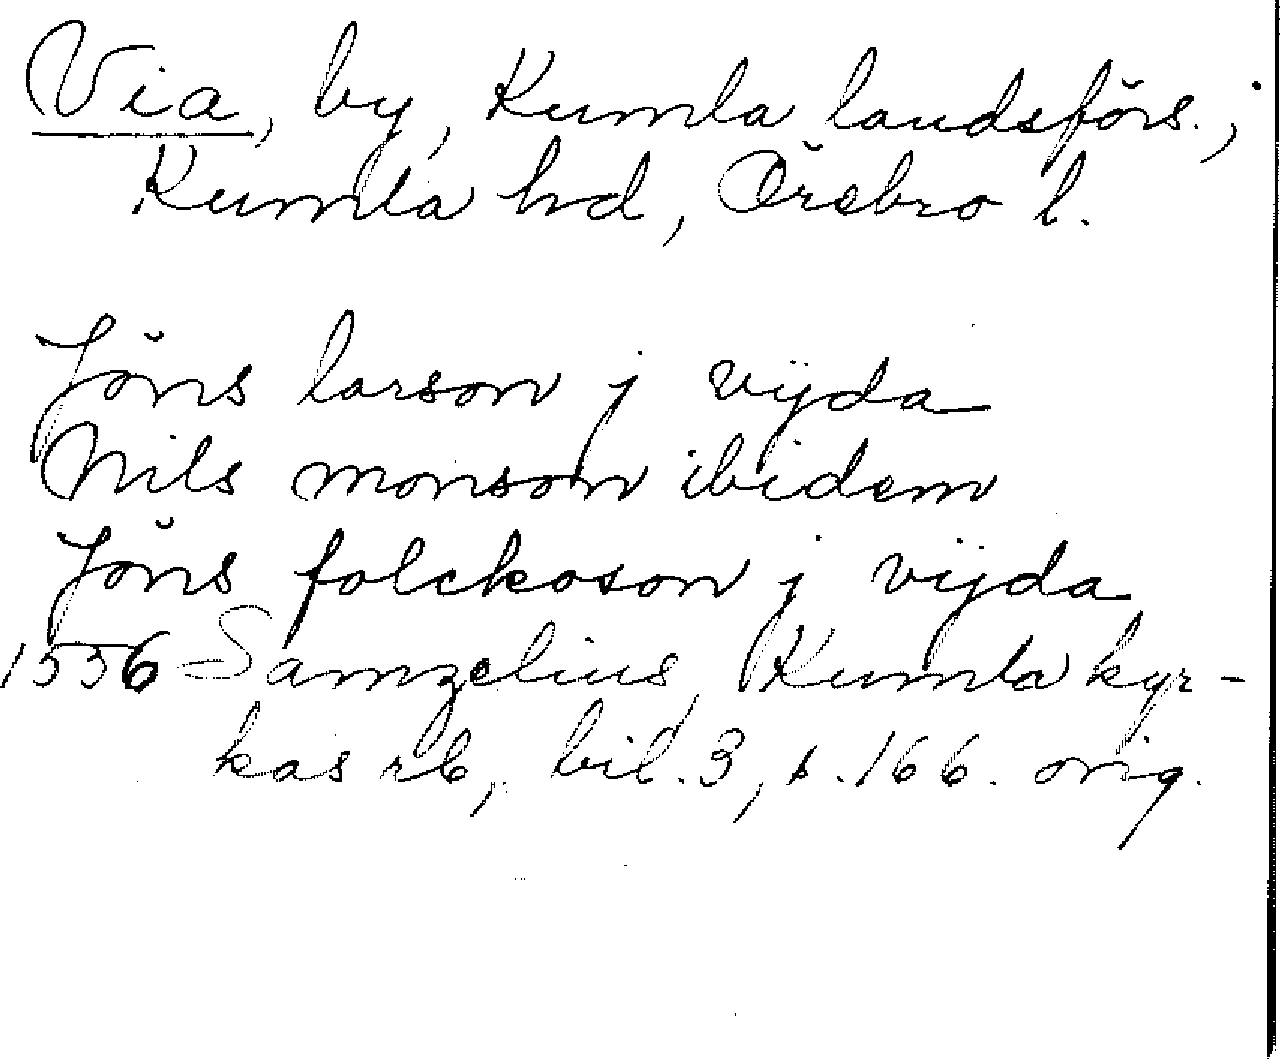 Via, by, Kumla landsförs.,
Kumla hd, Örebro l.
Jöns larson j vijda
Nils monson ibidem
Jöns folckoson j vijda
1556 Samzelius, Kumla kyr-
kas rb, bil. 3, s. 166. orig.